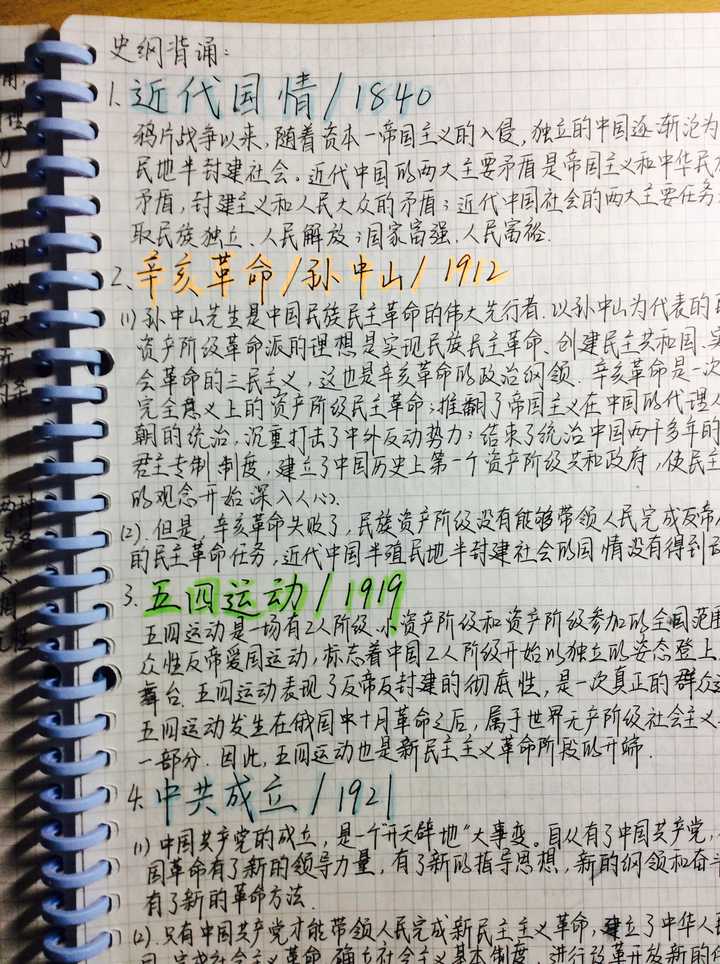 史纲背诵:
1. 近代国情/1840
鸦片战争以来,随着资本一帝国主义的入侵,独立的中国逐渐沦为
民地半封建社会。近代中国的两大主要矛盾是帝国主义和中华民
矛盾,封建主义和人民大众的矛盾;近代中国社会的两大主要任务
取民族独立、人民解放;国家富强、人民富裕.
2、辛亥革命/孙中山/1912
(1) 孙中山先生是中国民族民主革命的伟大先行者.以孙中山为代表的
资产阶级革命派的理想是实现民族民主革命、创建民主共和国、
会革命的三民主义,这也是辛亥革命的政治纲领.辛亥革命是一次
完全意义上的资产阶级民主革命;推翻了帝国主义在中国的代理人
朝的统治,沉重打击了中外反动势力;结束了统治中国两千多年的
君主专制制度,建立了中国历史上第一个资产阶级共和政府,使民主
的观念开始深入人心.
(2).但是,辛亥革命失败了,民族资产阶级没有能够带领人民完成反帝
的民主革命任务,近代中国半殖民地半封建社会的国情没有得到
3. 五四运动/1919
五四运动是一场有工人阶级、小资产阶级和资产阶级参加的全国范围
众性反帝爱国运动,标志着中国工人阶级开始以独立的姿态登上
舞台.五四运动表现了反帝反封建的彻底性,是一次真正的群众
五四运动发生在俄国中十月革命之后,属于世界无产阶级社会主义
一部分.因此,五四运动也是新民主主义革命阶段的开端.
4. 中共成立/1921
(1) 中国共产党的成立,是一个开天辟地"大事变。自从有了中国共产党,
国革命有了新的领导力量,有了新的指导思想,新的纲领和奋
有了新的革命方法.
(2).只有中国共产党才能带领人民完成新民主主义革命,建立了中华人
完成社会主义革命,确立社会主义基本制度,进行改革开放新的